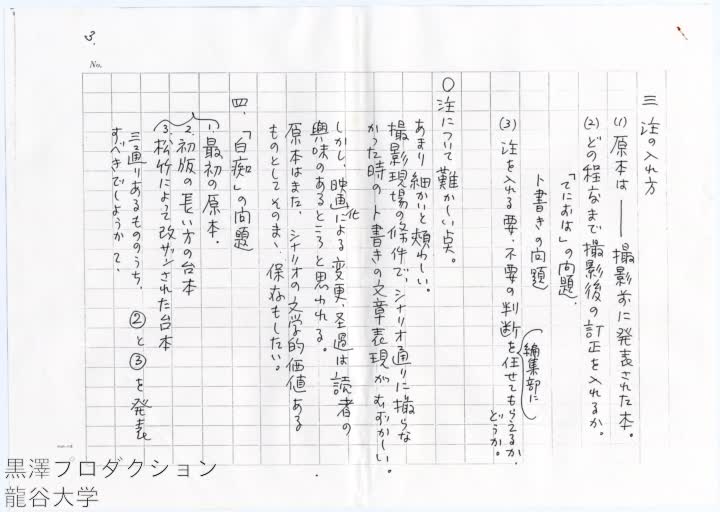 3.
No.
三 注の入れ方
(1) 原本は ── 撮影前に発表された本。
(2) どの程度まで撮影後の訂正を入れるか。
「てにおは」の問題、
ト書きの問題
(3) 注を入れる要、不要の判断を任せてもらえるか、どうか。
編集部に
○注について難かしい点。
あまり細かいと煩わしい。
撮影現場の条件で、シナリオ通りに撮らな
かった時の ト書きの文章表現がむずかしい。
しかし、映画化による変更、経過は読者の
興味のあるところと思われる。
原本はまた、シナリオの文学的価値ある
ものとしてそのまゝ保存もしたい。
四、「白痴」の問題
1. 最初の原本、
2. 初版の長い方の台本
3. 松竹によって改サンされた台本
三通りあるもののうち、②と③を発表
すべきでしょうか?、
黒澤プロダクション
龍谷大学